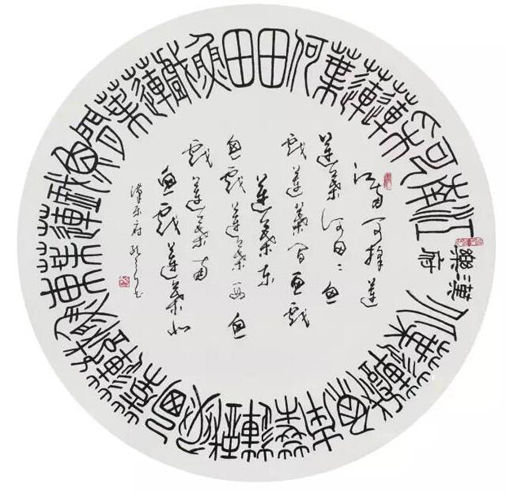 江南可采蓮蓮葉何田田魚戲蓮葉間魚戲蓮葉東魚戲蓮葉西魚戲蓮葉南魚戲蓮葉北
漢樂府
江南可採蓮
蓮葉何田〻魚
戲蓮葉間魚戲
蓮葉東
魚戲蓮葉西魚
戲蓮葉南
魚戲蓮葉北
漢樂府